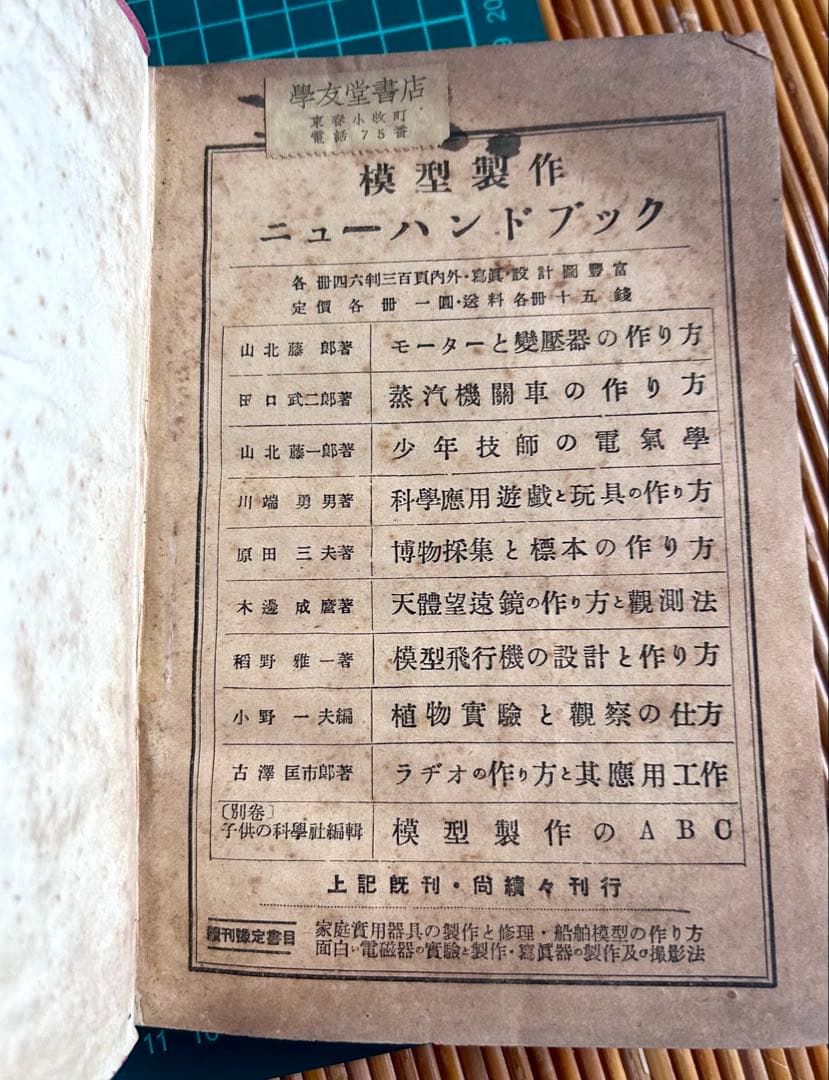 學友堂書店
東春小牧町
電話75番
模型製作
ニューハンドブック
各冊四六判三百頁內外・寫眞・設計圖豐富
定價各冊一圓・送料各冊十五錢
山北藤郎著 モーターと變壓器の作り方
田口武二郎著 蒸汽機關車の作り方
山北藤一郎著 少年技師の電氣學
川端勇男著 科學應用遊戲と玩具の作り方
原田三夫著 博物採集と標本の作り方
木邊成麿著 天體望遠鏡の作り方と觀測法
稻野雅一著 模型飛行機の設計と作り方
小野一夫編 植物實驗と觀察の仕方
古澤匡市郎著 ラヂオの作り方と其應用工作
〔別卷〕
子供の科學社編輯 模型製作のABC
上記既刊・尙續々刊行
續刊豫定書目
家庭實用器具の製作と修理・船舶模型の作り方
面白い電磁器の實驗と製作・寫眞器の製作及び撮影法
20
9
11
10